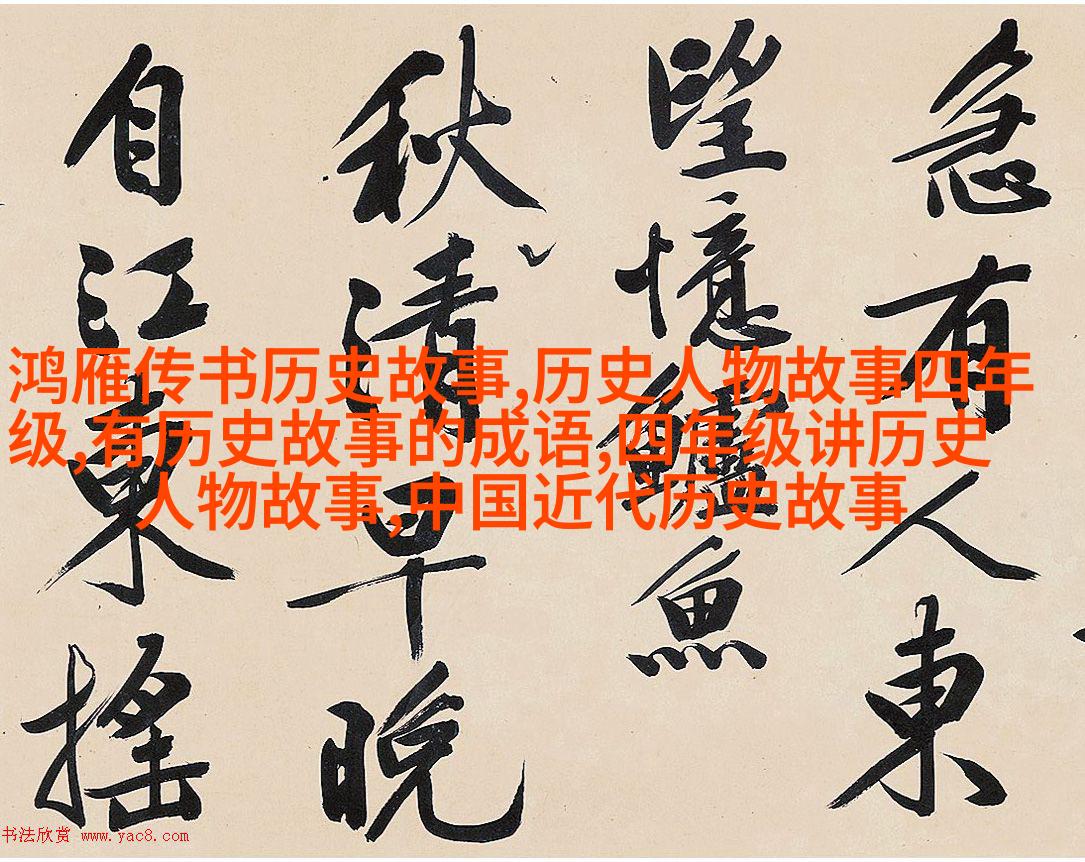 急有人東
望憶鱸魚
秋清早晚
自江東搖
鸿雁传书历史故事,历史人物故事四年
级,有历史故事的成语,四年级讲历史
人物故事,中国近代历史故事
书法欣赏 www.yac8.com